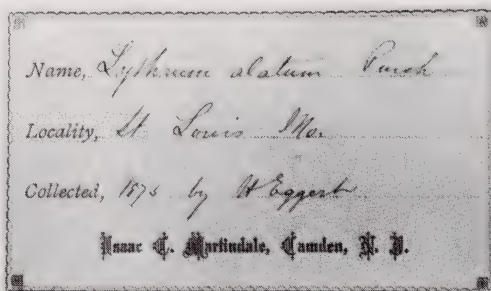 Name, Lythrum alatum Pursh
Locality, St Louis Mo.
Collected, 1875 by H Eggert
Isaac C. Martindale, Camden, N. J.